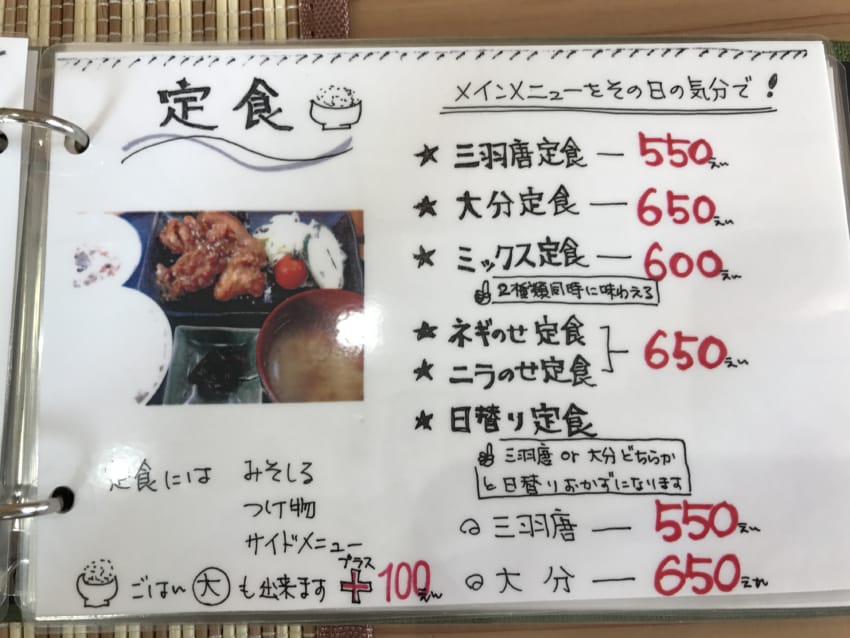 定食
メインメニューをその日の気分で!
★ 三羽唐定食 — 550えん
★ 大分定食 — 650えん
★ ミックス定食 — 600えん
2種類同時に味わえる
★ ネギのせ定食
★ ニラのせ定食
650えん
★ 日替り定食
三羽唐 or 大分どちらか
と日替りおかずになります
三羽唐 — 550えん
大分 — 650えん
定食には みそしる
つけ物
サイドメニュー
ごはん大も出来ます プラス + 100えん